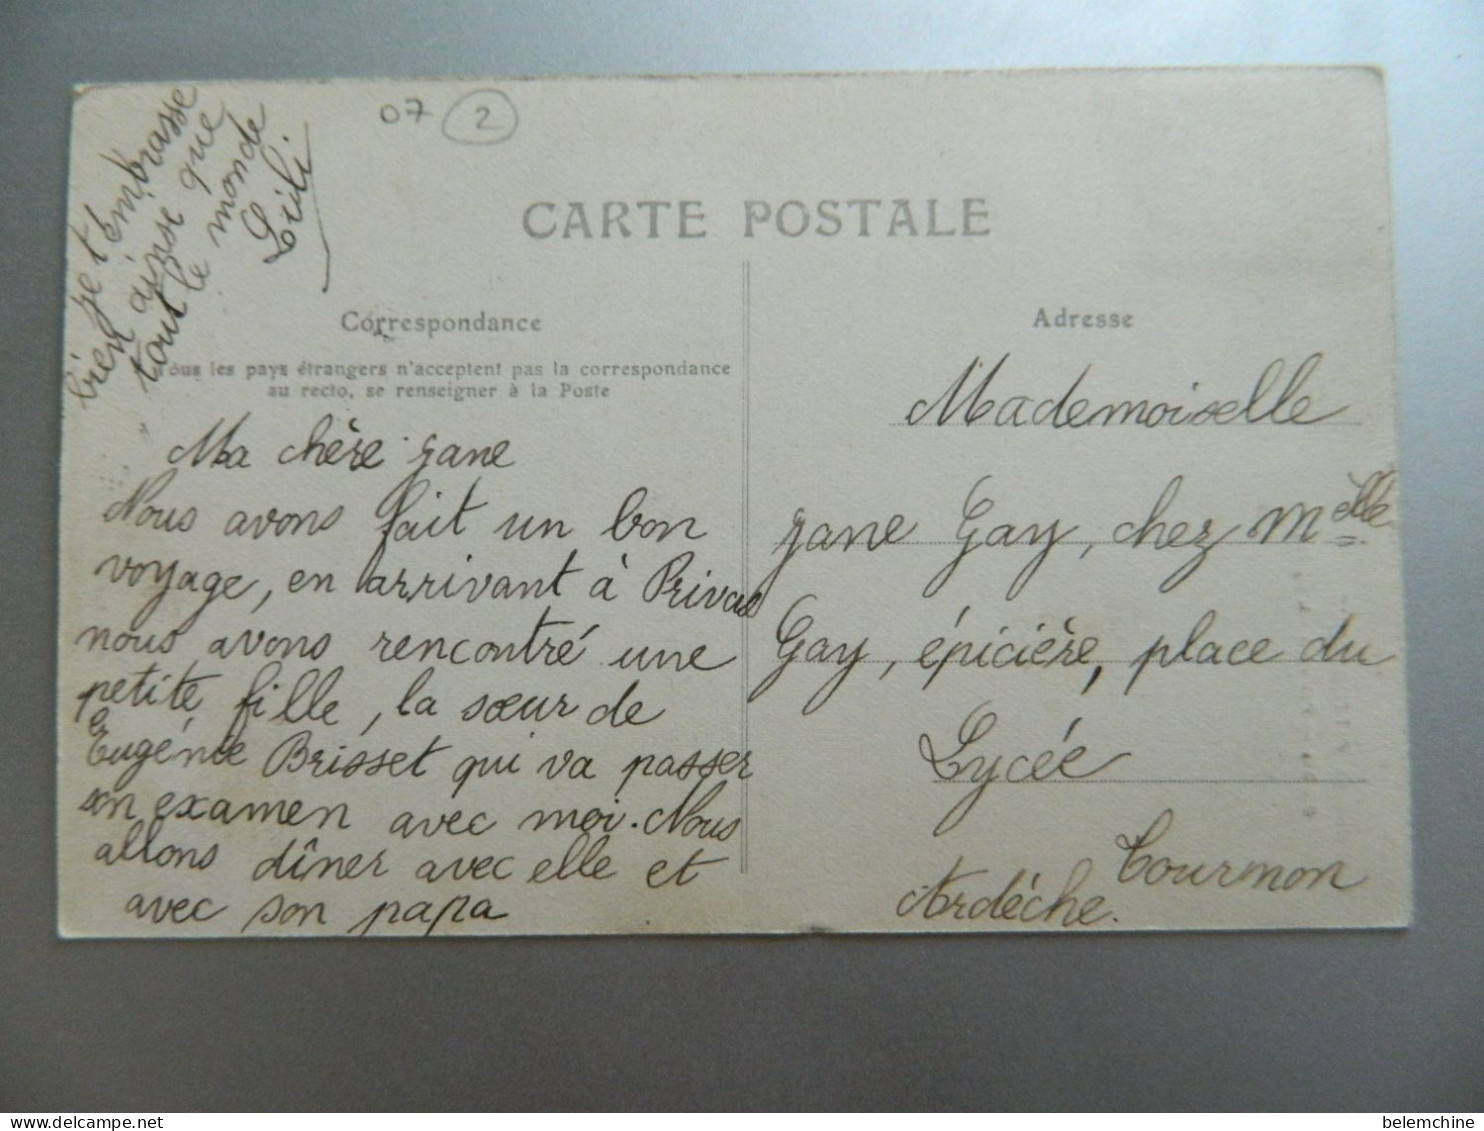 07 2
CARTE POSTALE
Correspondance
Tous les pays étrangers n'acceptent pas la correspondance
au recto, se renseigner à la Poste
Ma chère jane
Nous avons fait un bon
voyage, en arrivant à Privas
nous avons rencontré une
petite fille, la sœur de
Eugénie Brisset qui va passer
son examen avec moi. Nous
allons dîner avec elle et
avec son papa
je t'embrasse
bien ainsi que
tout le monde
Lili
Adresse
Mademoiselle
jane Gay, chez Melle
Gay, épicière, place du
Lycée
Tournon
Ardèche.
belemchine